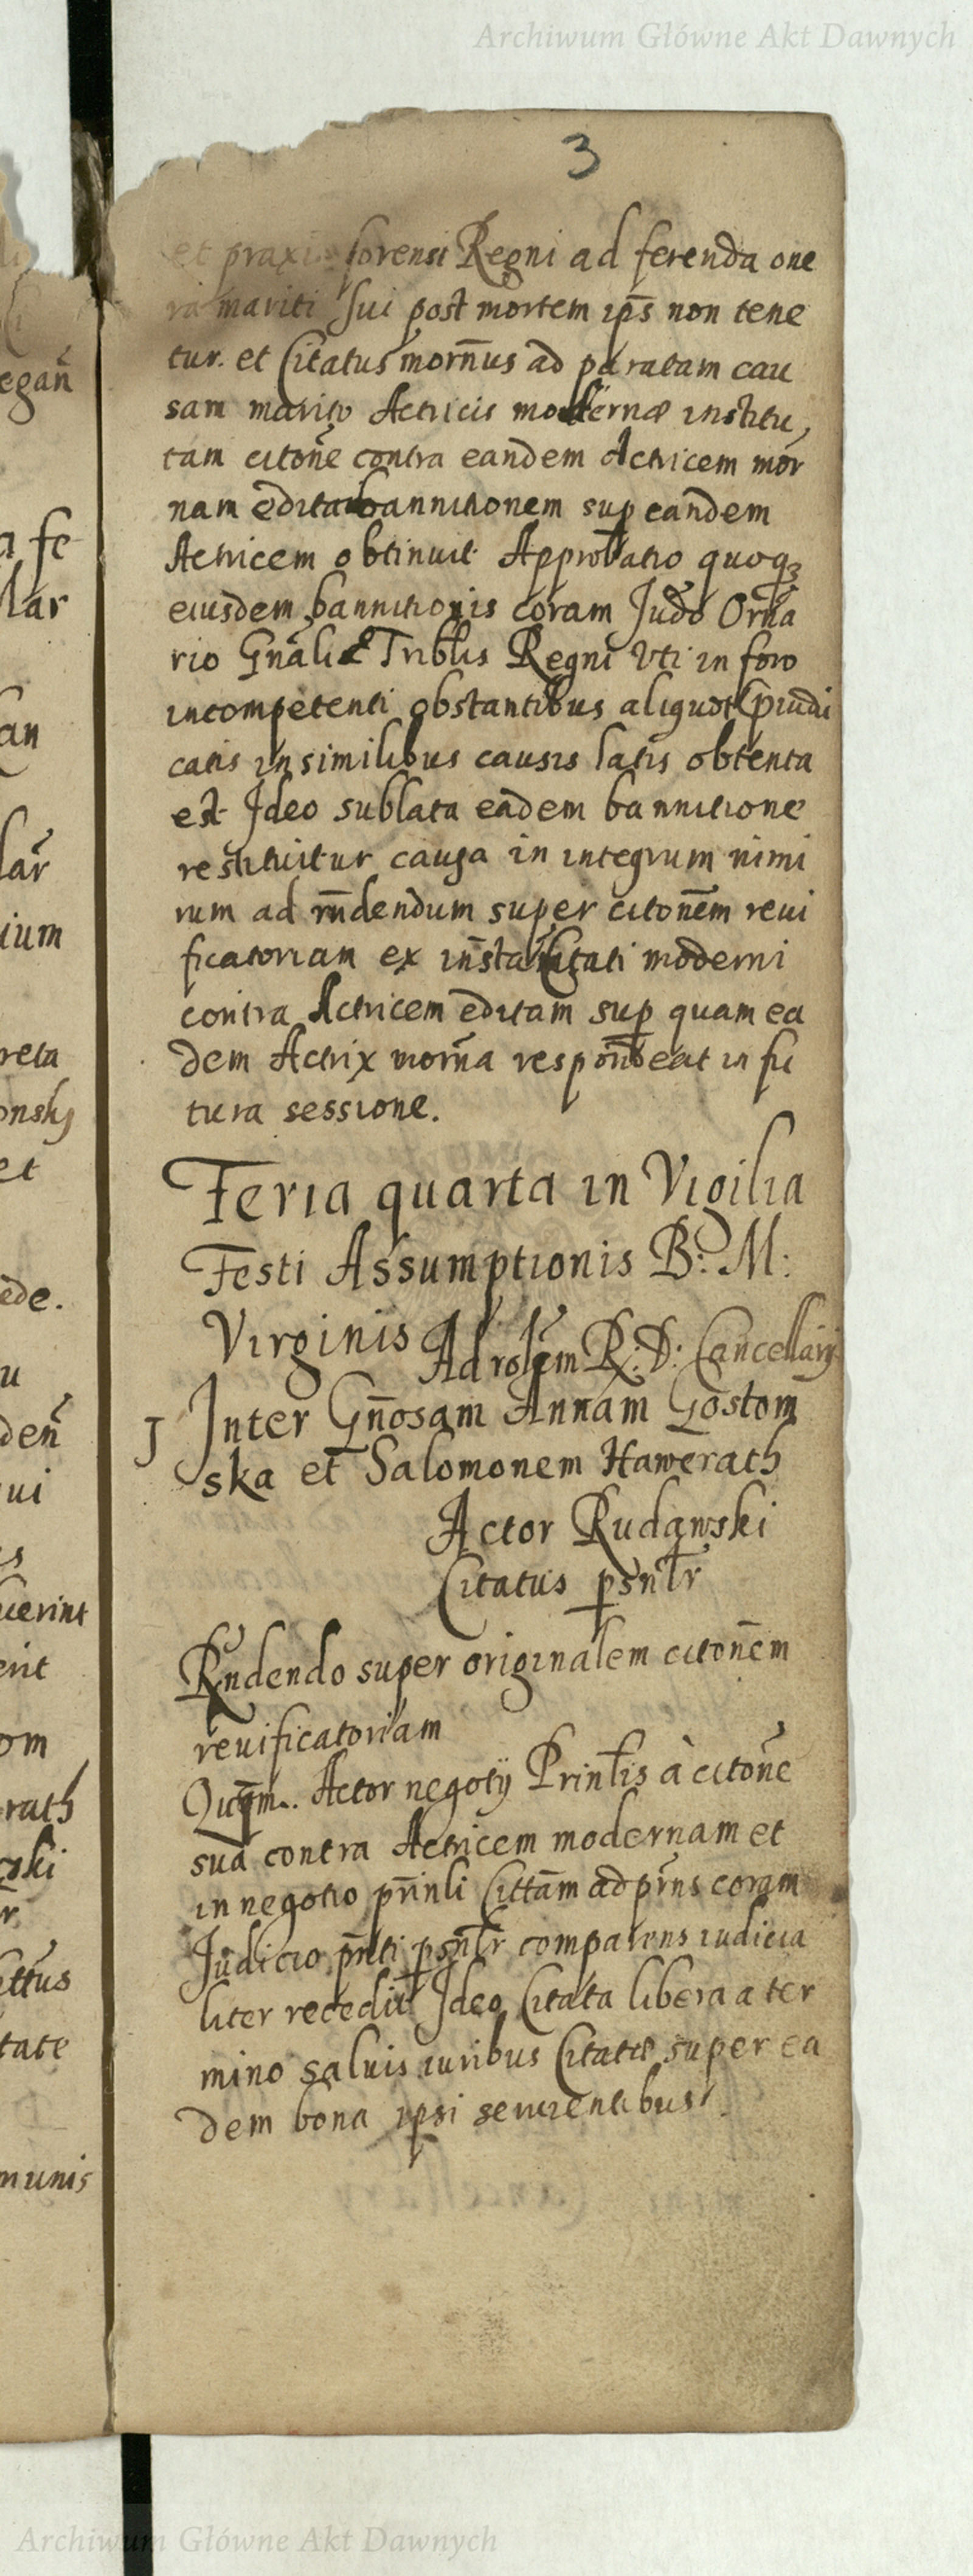 Archiwum Główne Akt Dawnych
3
et praxi forensi Regni ad ferenda one
ra mariti sui post mortem ips̄ non tene
tur. et Citatus morn̄us ad paratam cau
sam marito Actricis modernæ institu,
tam citon̄e contra eandem Actricem mor
nam edita bannitionem sup eandem
Actricem obtinuit Approbatio quoqꝫ
eiusdem bannitionis coram Judo Orn̄a
rio Gn̄alis Triblis Regni Vti in foro
incompetenti obstantibus aliquot p̄iudi
catis in similibus causis latis obtenta
est Ideo sublata eadem bannitione
restituitur causa in integrum nimi
rum ad rn̄dendum super citon̄em reui
ficatoriam ex insta Citati moderni
contra Actricem editam sup quam ea
dem Actrix morn̄a respondeat in fu
tura sessione.
Feria quarta in Vigilia
Festi Assumptionis B: M:
Virginis
Ad rolem R: D: Cancellarij
J Inter Gn̄osam Annam Gostom
ska et Salomonem Hawerath
Actor Rudawski
Citatus psn̄lr
Rn̄dendo super originalem citon̄em
reuificatoriam
Quōm Actor negotij Prinlis à citon̄e
sua contra Actricem modernam et
in negotio prin̄li Cittām ad prn̄s coram
Judicio pn̄ti psn̄lr comparens iudicia
liter recedit Ideo Citata libera a ter
mino saluis iuribus Citatæ super ea
dem bona ipsi seruientibus.
egan̄
a fe
lar
an
lar̄
ium
reta
onskỹ
et
ede.
u
den̄
ui
is
uerint
erit
om
rath
ski
r
ettus
tate
munis
Archiwum Główne Akt Dawnych